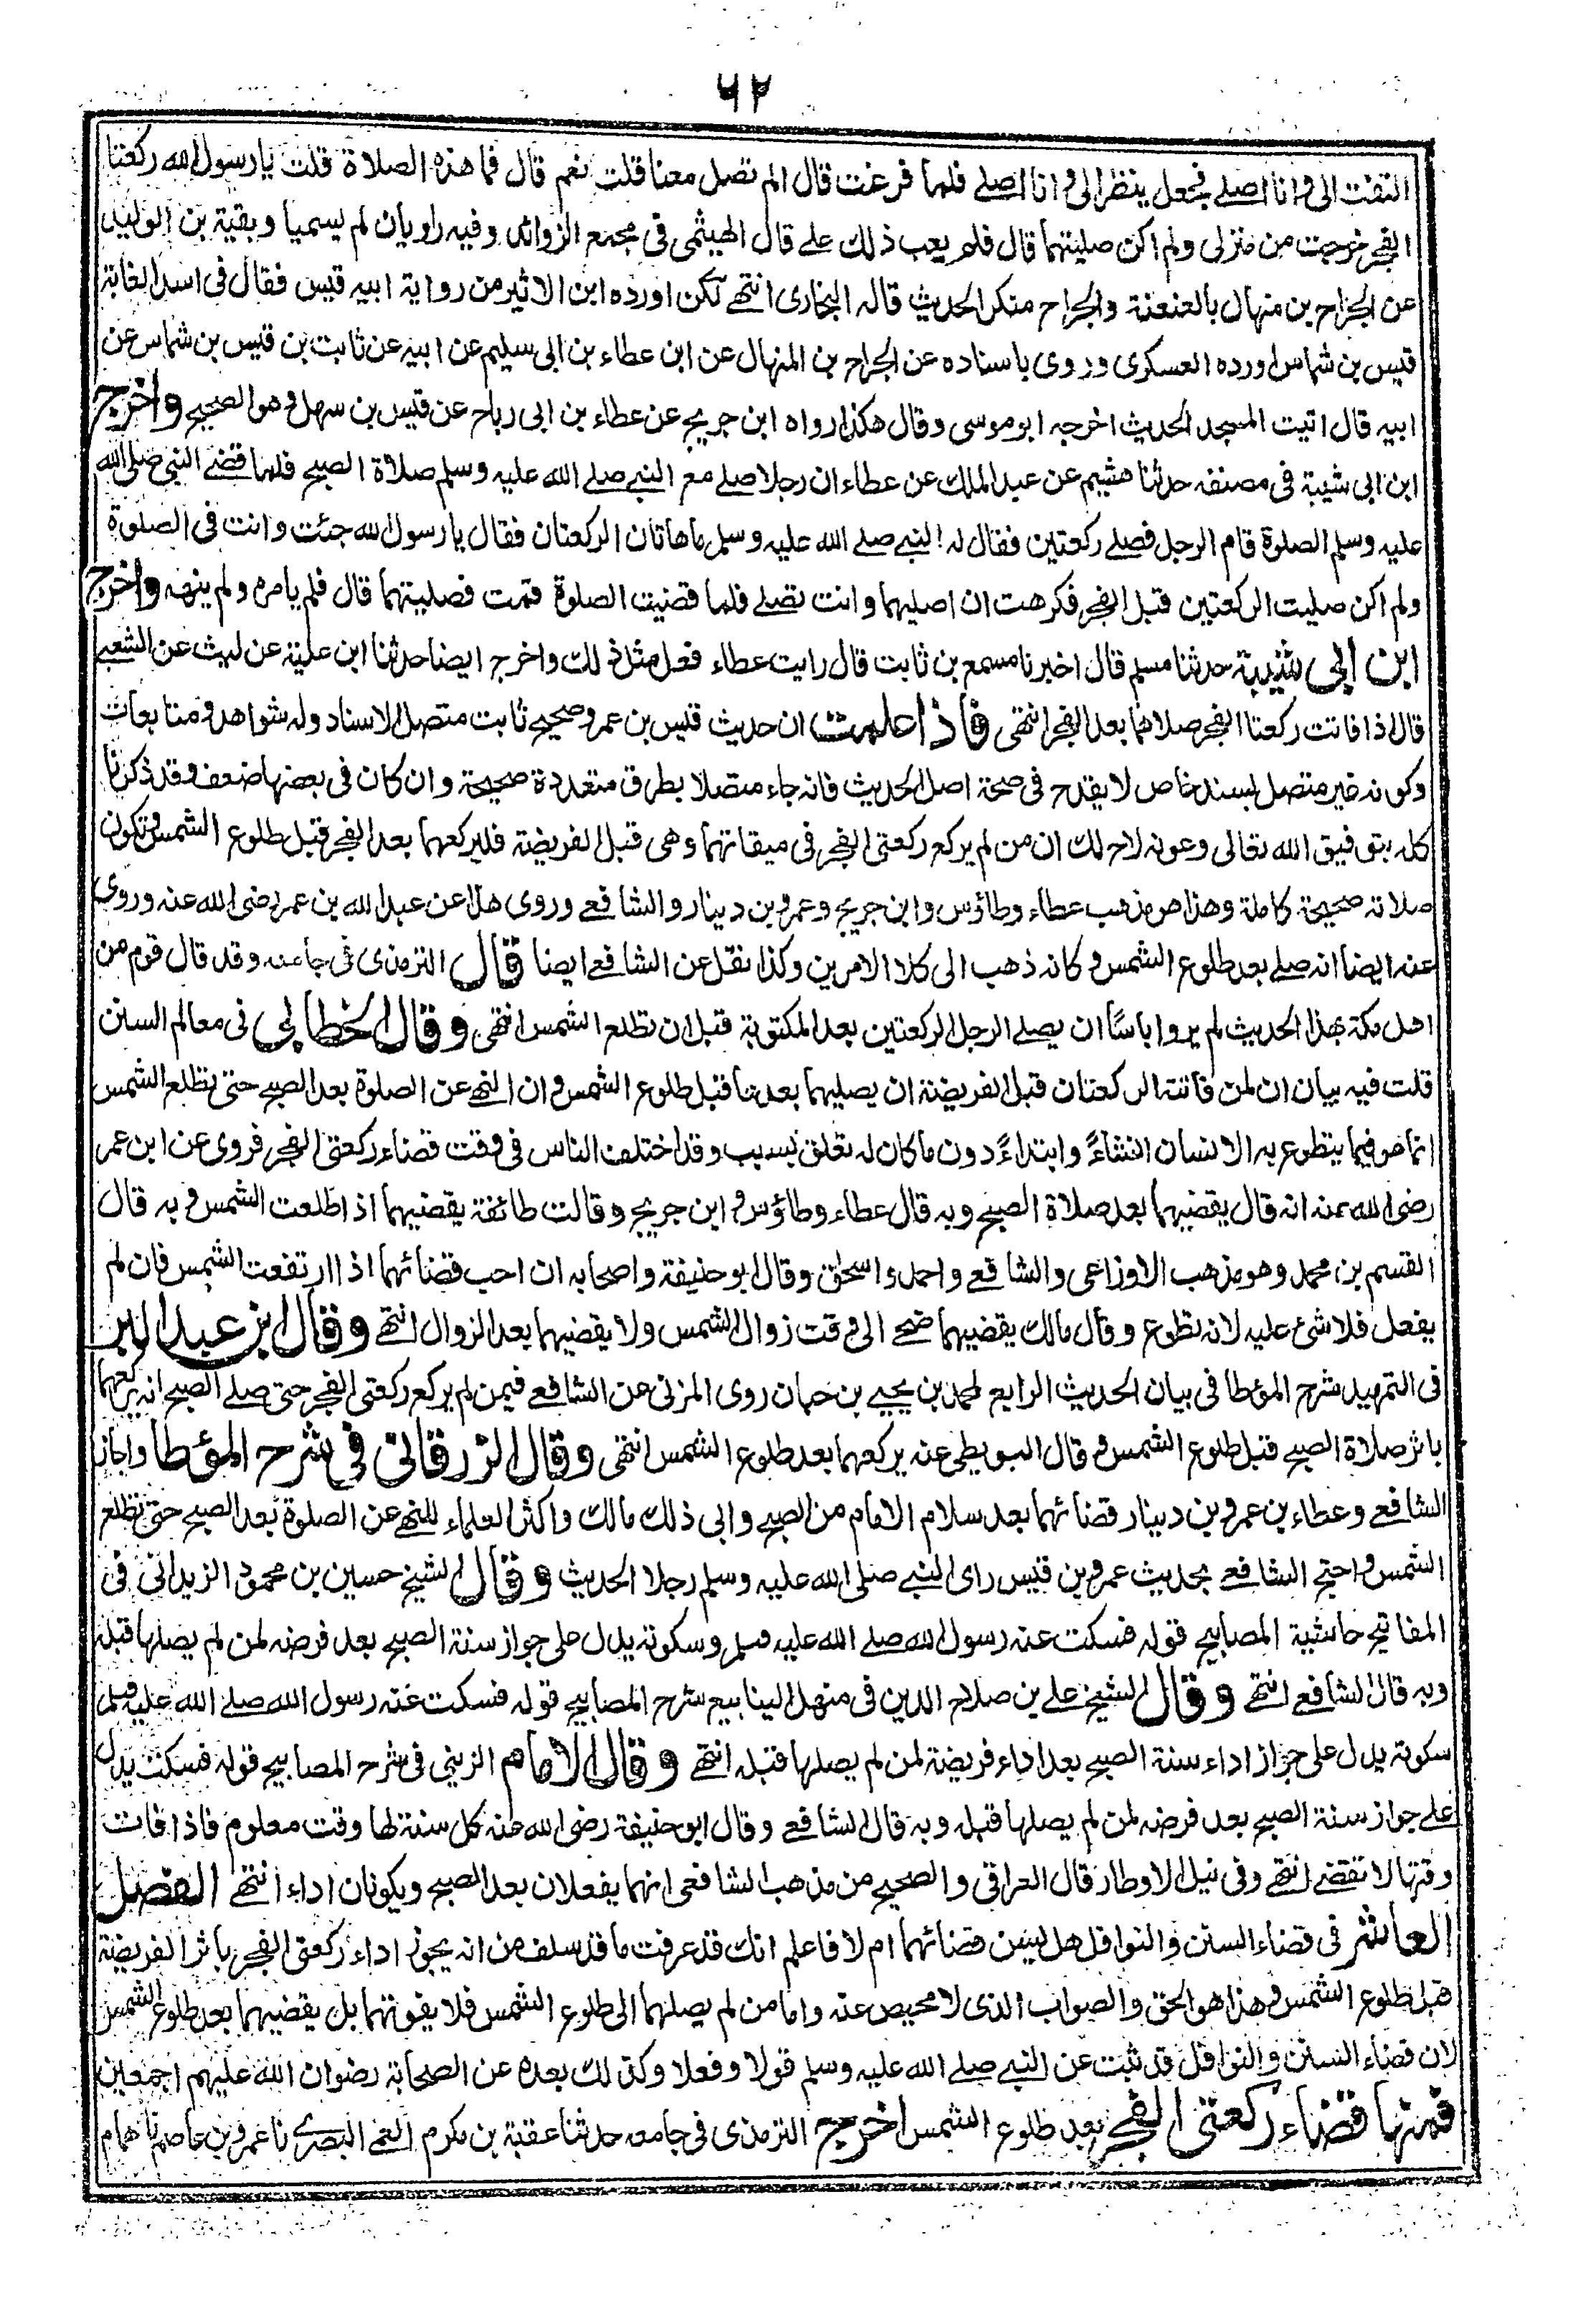 ٦٢
التفت الى وانا اصلے فجعل ينظر الى وانا اصلے فلما فرغت قال الم تصل معنا قلت نعم قال فما هذه الصلاة قلت يا رسول الله ركعتا
الفجر خرجت من منزلى ولم اكن صليتهما قال فلم يعب ذلك علے قال الهيثمى فى مجمع الزوائد وفيه راويان لم يسميا وبقية بن الوليد
عن الجراح بن منهال بالعنعنة والجراح منكر الحديث قاله البخارى انتهے لكن اورده ابن الاثير من رواية ابيه قيس فقال فى اسد الغابة
قيس بن شماس اورده العسكرى وروى باسناده عن الجراح بن المنهال عن ابن عطاء بن ابى سليم عن ابيه عن ثابت بن قيس بن شماس عن
ابيه قال اتيت المسجد الحديث اخرجه ابو موسى وقال هكذا رواه ابن جريج عن عطاء بن ابى رباح عن قيس بن سهل وهو الصحيح واخرج
ابن ابى شيبة فى مصنفه حدثنا هشيم عن عبد الملك عن عطاء ان رجلا صلے مع النبے صلے الله عليه وسلم صلاة الصبح فلما قضے النبى صلى الله
عليه وسلم الصلوة قام الرجل فصلے ركعتين فقال له النبے صلے الله عليه وسلم ما هاتان الركعتان فقال يا رسول الله جئت وانت فى الصلوة
ولم اكن صليت الركعتين قبل الفجر فكرهت ان اصليهما وانت تصلے فلما قضيت الصلوة قمت فصليتهما قال فلم يامره ولم ينهه واخرج
ابن ابى شيبة حدثنا مسلم قال اخبرنا مسمع بن ثابت قال رايت عطاء فعل مثل ذلك واخرج ايضا حدثنا ابن علية عن ليث عن الشعبے
قال اذا فاتت ركعتا الفجر صلاهما بعد الفجر انتهى فاذا علمت ان حديث قيس بن عمرو صحيح ثابت متصل الاسناد وله شواهد ومتابعات
وكونه غير متصل بسند خاص لا يقدح فى صحة اصل الحديث فانه جاء متصلا بطرق متعددة صحيحة وان كان فى بعضها ضعف وقد ذكرنا
كله بتوفيق الله تعالى وعونه لاح لك ان من لم يركع ركعتى الفجر فى ميقاتهما وهى قبل الفريضة فليركعهما بعد الفجر قبل طلوع الشمس وتكون
صلاته صحيحة كاملة وهذا هو مذهب عطاء وطاؤس وابن جريج وعمرو بن دينار والشافعے وروى هذا عن عبد الله بن عمر رضى الله عنه وروى
عنه ايضا انه صلے بعد طلوع الشمس وكانه ذهب الى كلا الامرين وكذا نقل عن الشافعے ايضا قال الترمذى فى جامعه وقد قال قوم من
اهل مكة بهذا الحديث لم يروا باسًا ان يصلے الرجل الركعتين بعد المكتوبة قبل ان تطلع الشمس انتهى وقال الخطابى فى معالم السنن
قلت فيه بيان ان لمن فاتته الركعتان قبل الفريضة ان يصليهما بعدها قبل طلوع الشمس وان النهے عن الصلوة بعد الصبح حتى تطلع الشمس
انما هو فيما يتطوع به الانسان انشاءً وابتداءً دون ما كان له تعلق بسبب وقد اختلف الناس فى وقت قضاء ركعتى الفجر فروى عن ابن عمر
رضى الله عنه انه قال يقضيهما بعد صلاة الصبح وبه قال عطاء وطاؤس و ابن جريج وقالت طائفة يقضيهما اذا طلعت الشمس وبه قال
القسم بن محمد وهو مذهب الاوزاعى والشافعے واحمد واسحق وقال ابو حنيفة واصحابه ان احب قضائهما اذا ارتفعت الشمس فان لم
يفعل فلا شئ عليه لانه تطوع وقال مالك يقضيهما ضحے الى وقت زوال الشمس ولا يقضيهما بعد الزوال انتهے وقال ابن عبد البر
فى التمهيد شرح المؤطا فى بيان الحديث الرابع لمحمد بن يحيے بن حبان روى المزنى عن الشافعے فيمن لم يركع ركعتى الفجر حتى صلے الصبح انه يركعهما
باثر صلاة الصبح قبل طلوع الشمس وقال البويطى عنه يركعهما بعد طلوع الشمس انتهى وقال الزرقانى فى شرح المؤطا واجاز
الشافعے وعطاء بن عمرو بن دينار قضائهما بعد سلام الامام من الصبح وابى ذلك مالك واكثر العلماء للنهے عن الصلوة بعد الصبح حتى تطلع
الشمس واحتج الشافعے بحديث عمرو بن قيس راى النبے صلى الله عليه وسلم رجلا الحديث وقال الشيخ حسين بن محمود الزيدانى فى
المفاتيح حاشية المصابيح قوله فسكت عنه رسول الله صلے الله عليه وسلم وسكوته يدل على جواز سنة الصبح بعد فرضه لمن لم يصلها قبله
وبه قال الشافعے انتهے وقال الشيخ علے بن صلاح الدين فى منهل الينابيع شرح المصابيح قوله فسكت عنه رسول الله صلے الله عليه وسلم
سكوته يدل على جواز اداء سنة الصبح بعد اداء فريضة لمن لم يصلها قبله انتهے وقال الامام الزينى فى شرح المصابيح قوله فسكت يدل
علے جواز سنة الصبح بعد فرضه لمن لم يصلها قبله وبه قال الشافعے وقال ابو حنيفة رضى الله عنه كل سنة لها وقت معلوم فاذا فات
وقتها لا تقضے انتهے وفى نيل الاوطار قال العراقى والصحيح من مذهب الشافعى انهما يفعلان بعد الصبح ويكونان اداء انتهے الفصل
العاشر فى قضاء السنن والنوافل هل ليسن قضائهما ام لا فاعلم انك قد عرفت ما قد سلف من انه يجوز اداء ركعتى الفجر باثر الفريضة
قبل طلوع الشمس وهذا هو الحق والصواب الذى لا محيص عنه واما من لم يصلهما الى طلوع الشمس فلا يفوتهما بل يقضيهما بعد طلوع الشمس
لان قضاء السنن والنوافل قد ثبت عن النبے صلے الله عليه وسلم قولا وفعلا وكذلك بعده عن الصحابة رضوان الله عليهم اجمعين
فمنها قضاء ركعتى الفجر بعد طلوع الشمس اخرج الترمذى فى جامعه حدثنا عقبة بن مكرم العمے البصرے نا عمرو بن عاصم نا همام